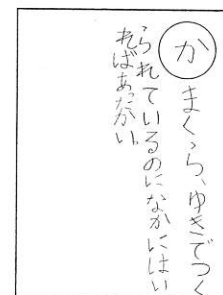 か
まくら、ゆきでつく
られているのになかにはい
ればあったかい。